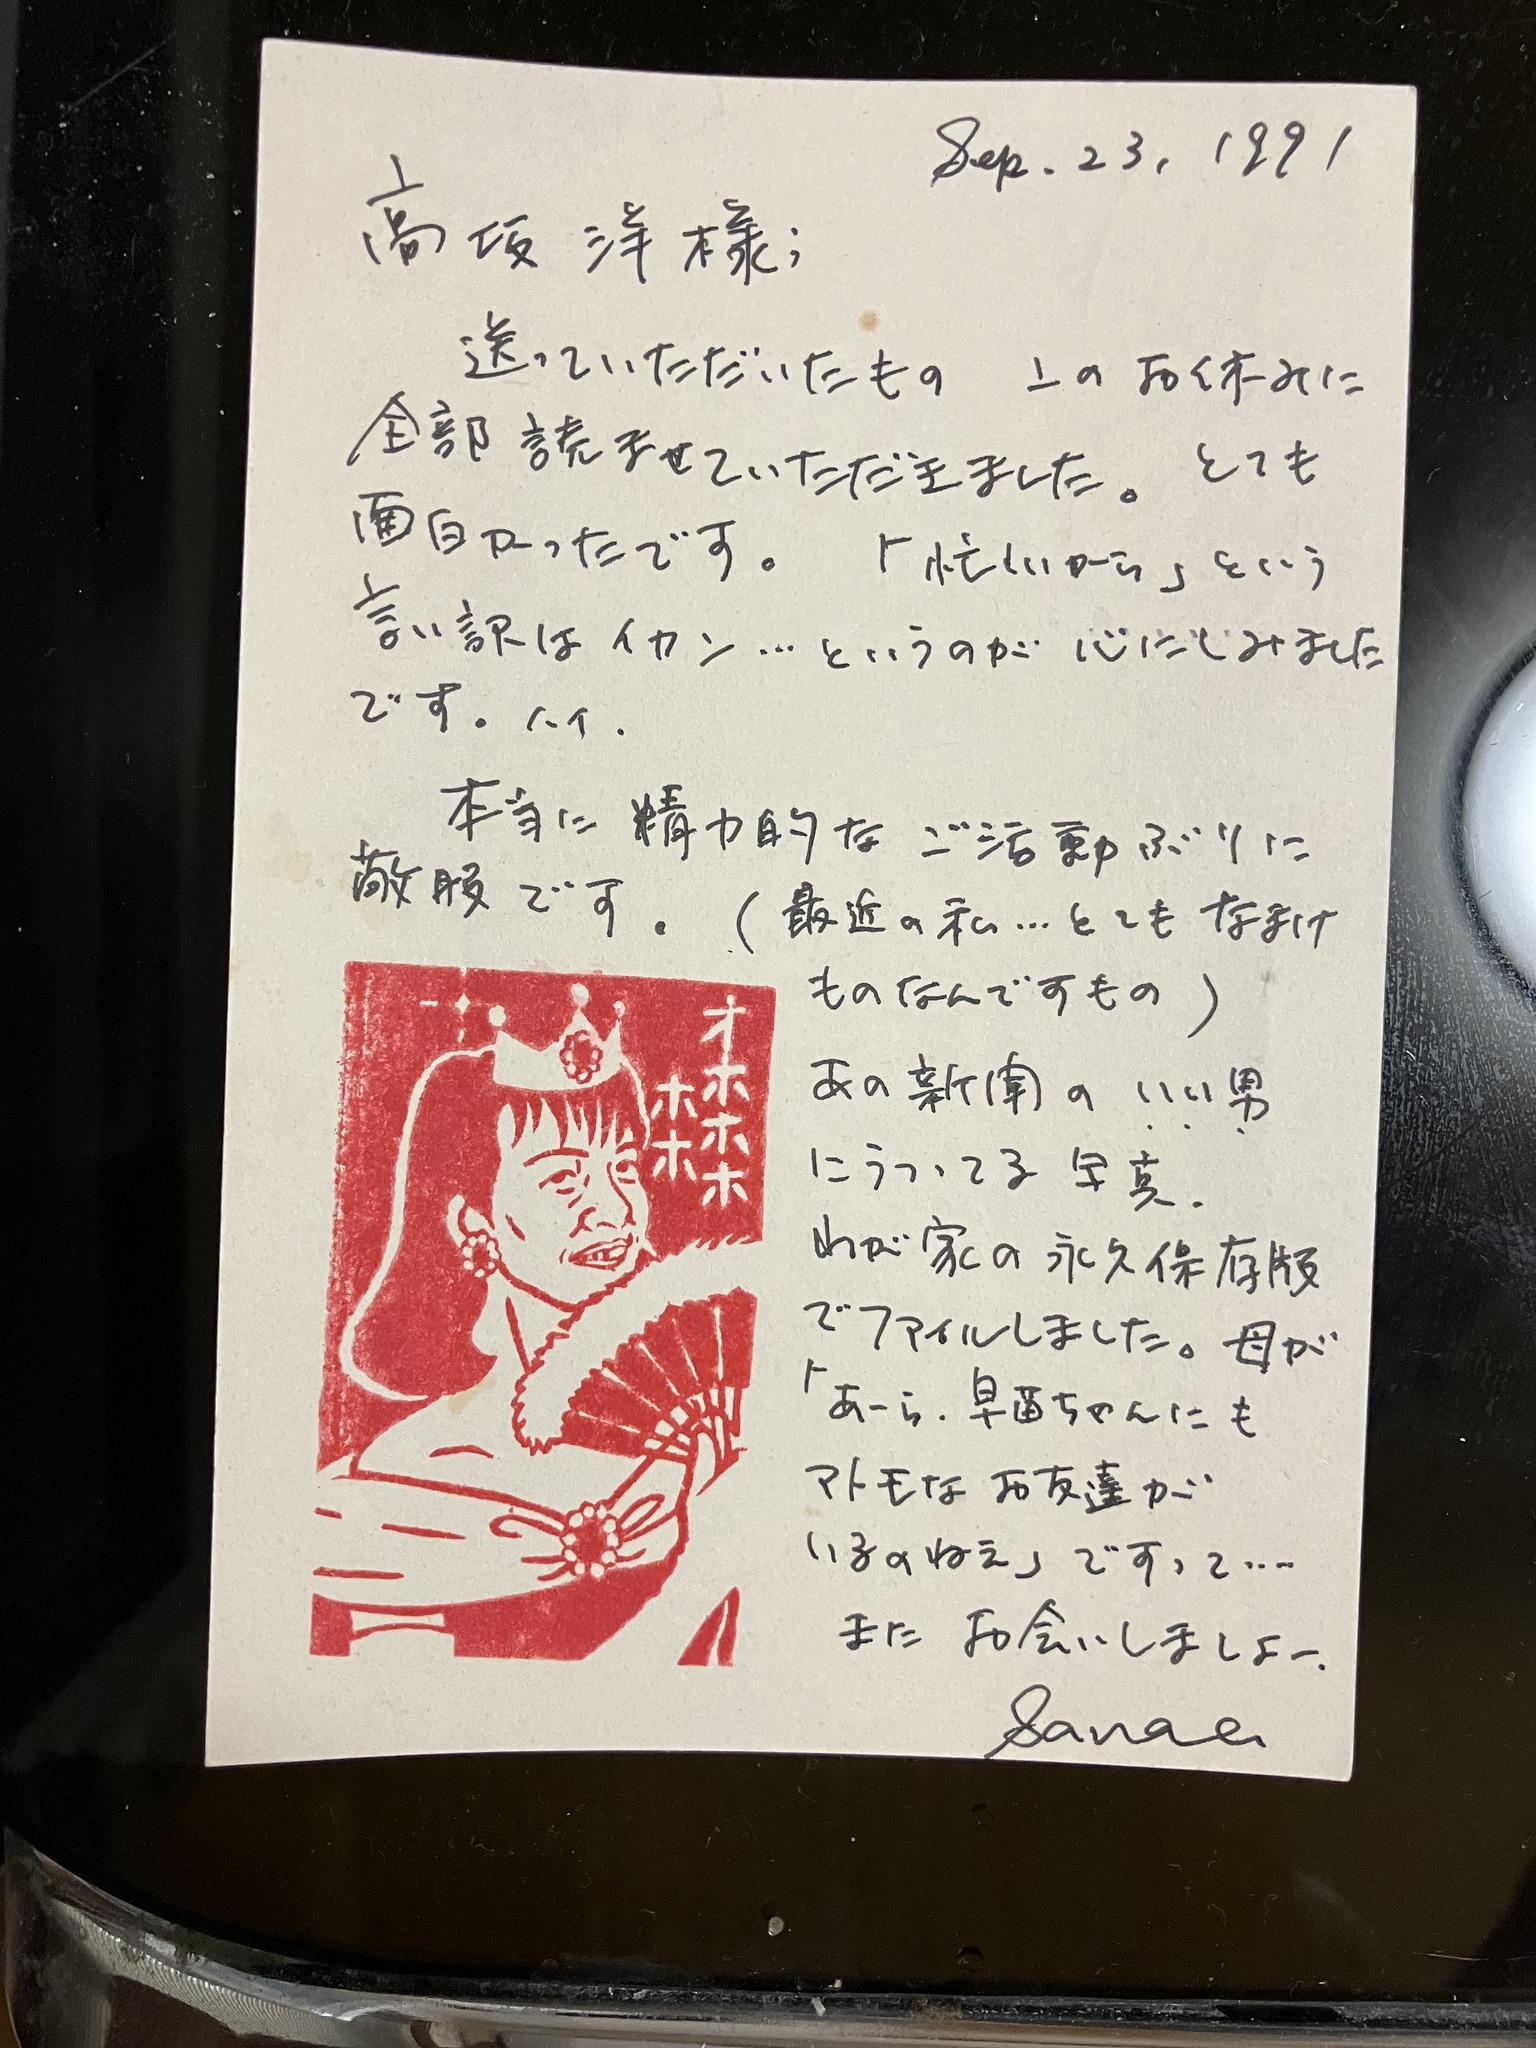 Sep. 23, 1991
高坂 洋 様;
送っていただいたもの 上のお休みに
全部読ませていただきました。とても
面白かったです。「忙しいから」という
言い訳はイカン…というのが心にしみました
です。ハイ.
本当に精力的なご活動ぶりに
敬服です。(最近の私…とてもなまけ
ものなんですもの)
あの新聞のいい男
にうつってる写真.
わが家の永久保存版
でファイルしました。母が
「あーら.早苗ちゃんにも
マトモなお友達が
いるのねえ」ですって…
またお会いしましょー.
Sanae
オーホホホ
ホホ